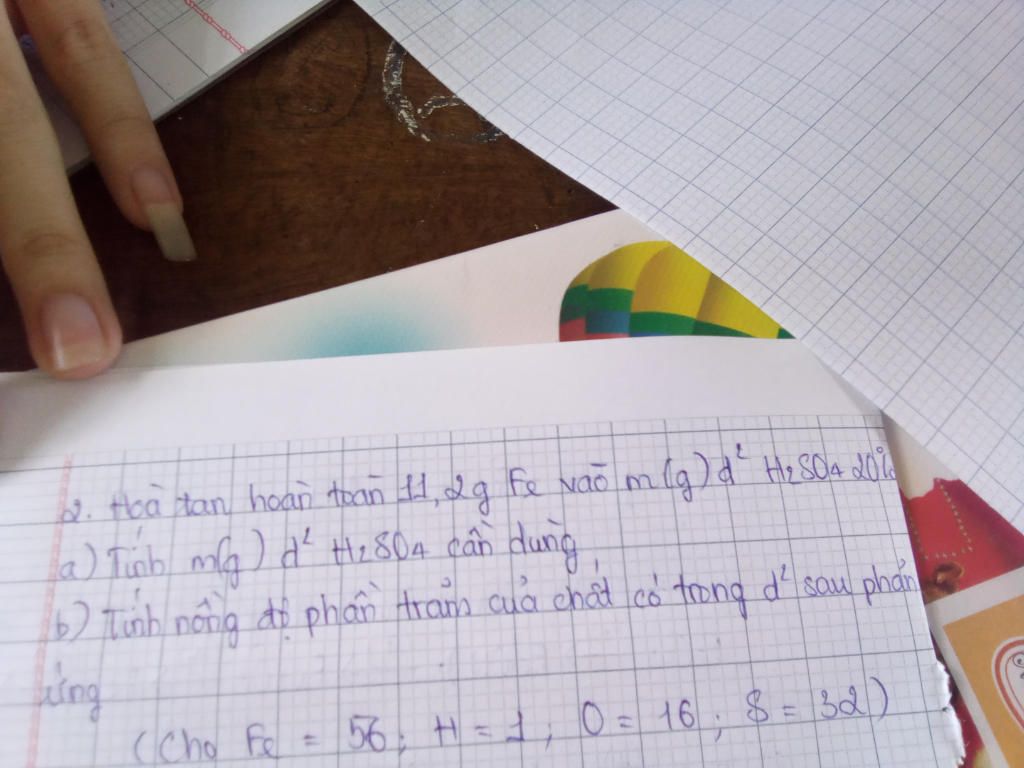 2. Hoà tan hoàn toàn 11,2g Fe vào m(g) d² H₂SO₄ 20%
a) Tính m(g) d² H₂SO₄ cần dùng
b) Tính nồng độ phần trăm của chất có trong d² sau phản
ứng
(Cho Fe = 56; H = 1; O = 16; S = 32)